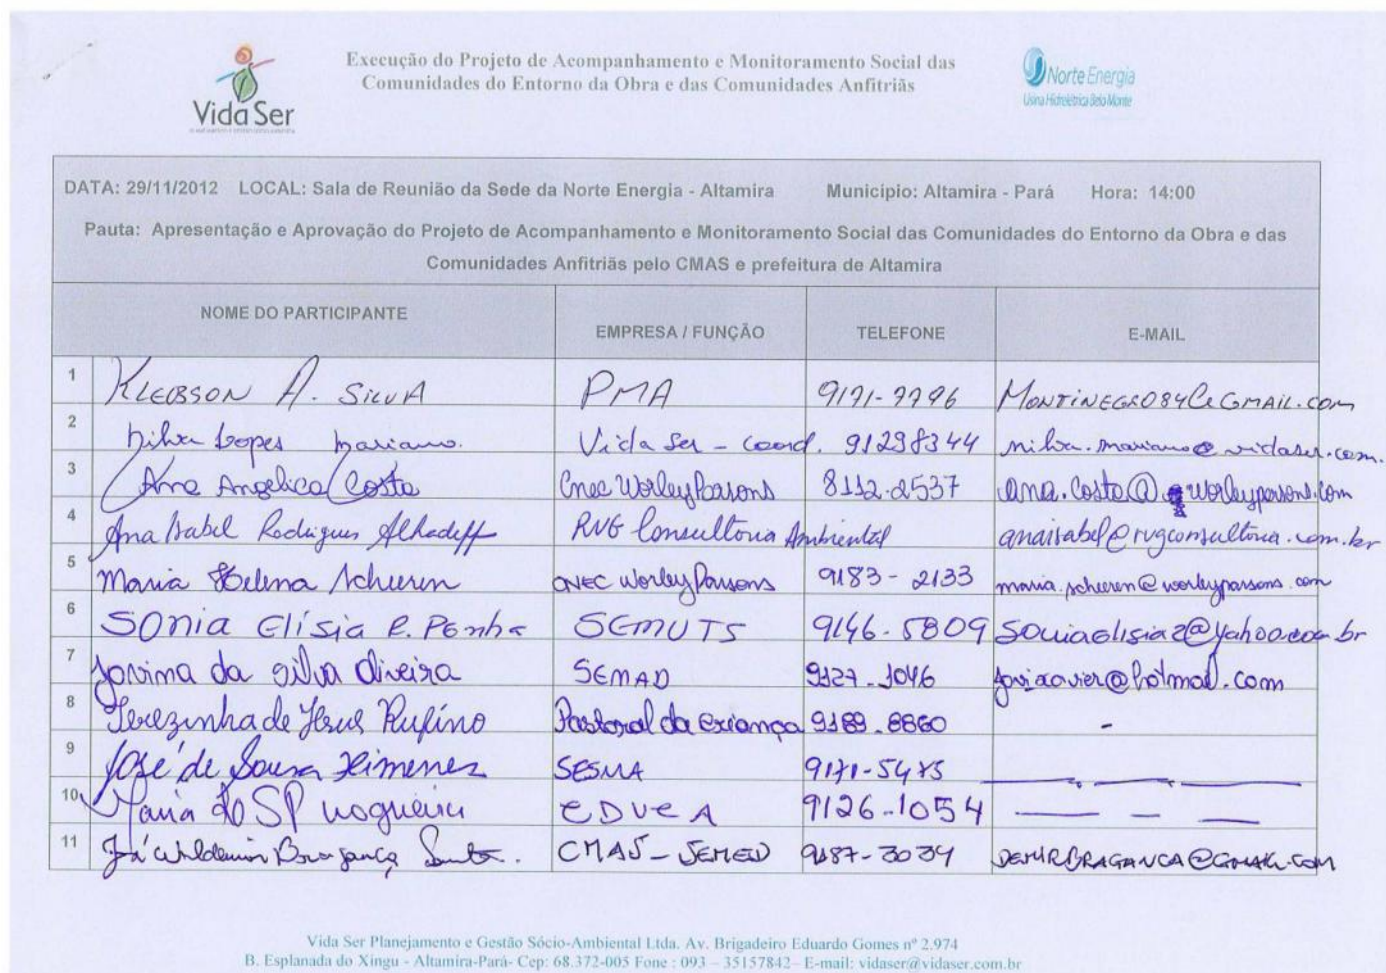 Execução do Projeto de Acompanhamento e Monitoramento Social das
Comunidades do Entorno da Obra e das Comunidades Anfitriãs
Vida Ser
Norte Energia
Usina Hidrelétrica Belo Monte
DATA: 29/11/2012 LOCAL: Sala de Reunião da Sede da Norte Energia - Altamira Município: Altamira - Pará Hora: 14:00
Pauta: Apresentação e Aprovação do Projeto de Acompanhamento e Monitoramento Social das Comunidades do Entorno da Obra e das
Comunidades Anfitriãs pelo CMAS e prefeitura de Altamira
NOME DO PARTICIPANTE EMPRESA / FUNÇÃO TELEFONE E-MAIL
1 KLEBSON A. SILVA PMA MONTINEGRO84@GMAIL.COM
2 Nilva Lopes Mariano. Vida Ser - Coord. 91298344 nilva.mariano@vidaser.com.
3 Ana Angelica Costa Cnec WorleyParsons 8112-2537 ana.costa@worleyparsons.com
4 Ana Isabel Rodrigues Alhadeff RVG Consultoria Ambiental anaisabel@rvgconsultoria.com.br
5 Maria Helena Scheren CNEC WorleyParsons 9183-2133 maria.scheren@worleyparsons.com
6 SONia Elísia R. Penha SEMUTS 9146-5809 Soniaelisia2@yahoo.com.br
7 Jovina da Silva Oliveira SEMAD 9127-1046 jovixavier@hotmail.com
8 Terezinha de Jesus Rufino Pastoral da Criança 9189-8860 -
9 José de Sousa Ximenes SESMA 9171-5475
10 Maria do SP Nogueira EDUCA 9126-1054
11 Bragança CMAS-SEMED 9187-3034 DEMIRBRAGANCA@GMAIL.COM
Vida Ser Planejamento e Gestão Sócio-Ambiental Ltda. Av. Brigadeiro Eduardo Gomes nº 2.974
B. Esplanada do Xingu - Altamira-Pará- Cep: 68.372-005 Fone : 093 – 35157842– E-mail: vidaser@vidaser.com.br